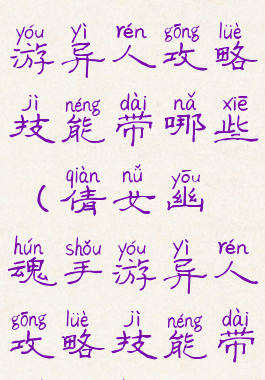 yóu yì rén gōng lüè
游异人攻略
jì néng dài nǎ xiē
技能带哪些
qiàn nǚ yōu
（倩女幽
hún shǒu yóu yì rén
魂手游异人
gōng lüè jì néng dài
攻略技能带